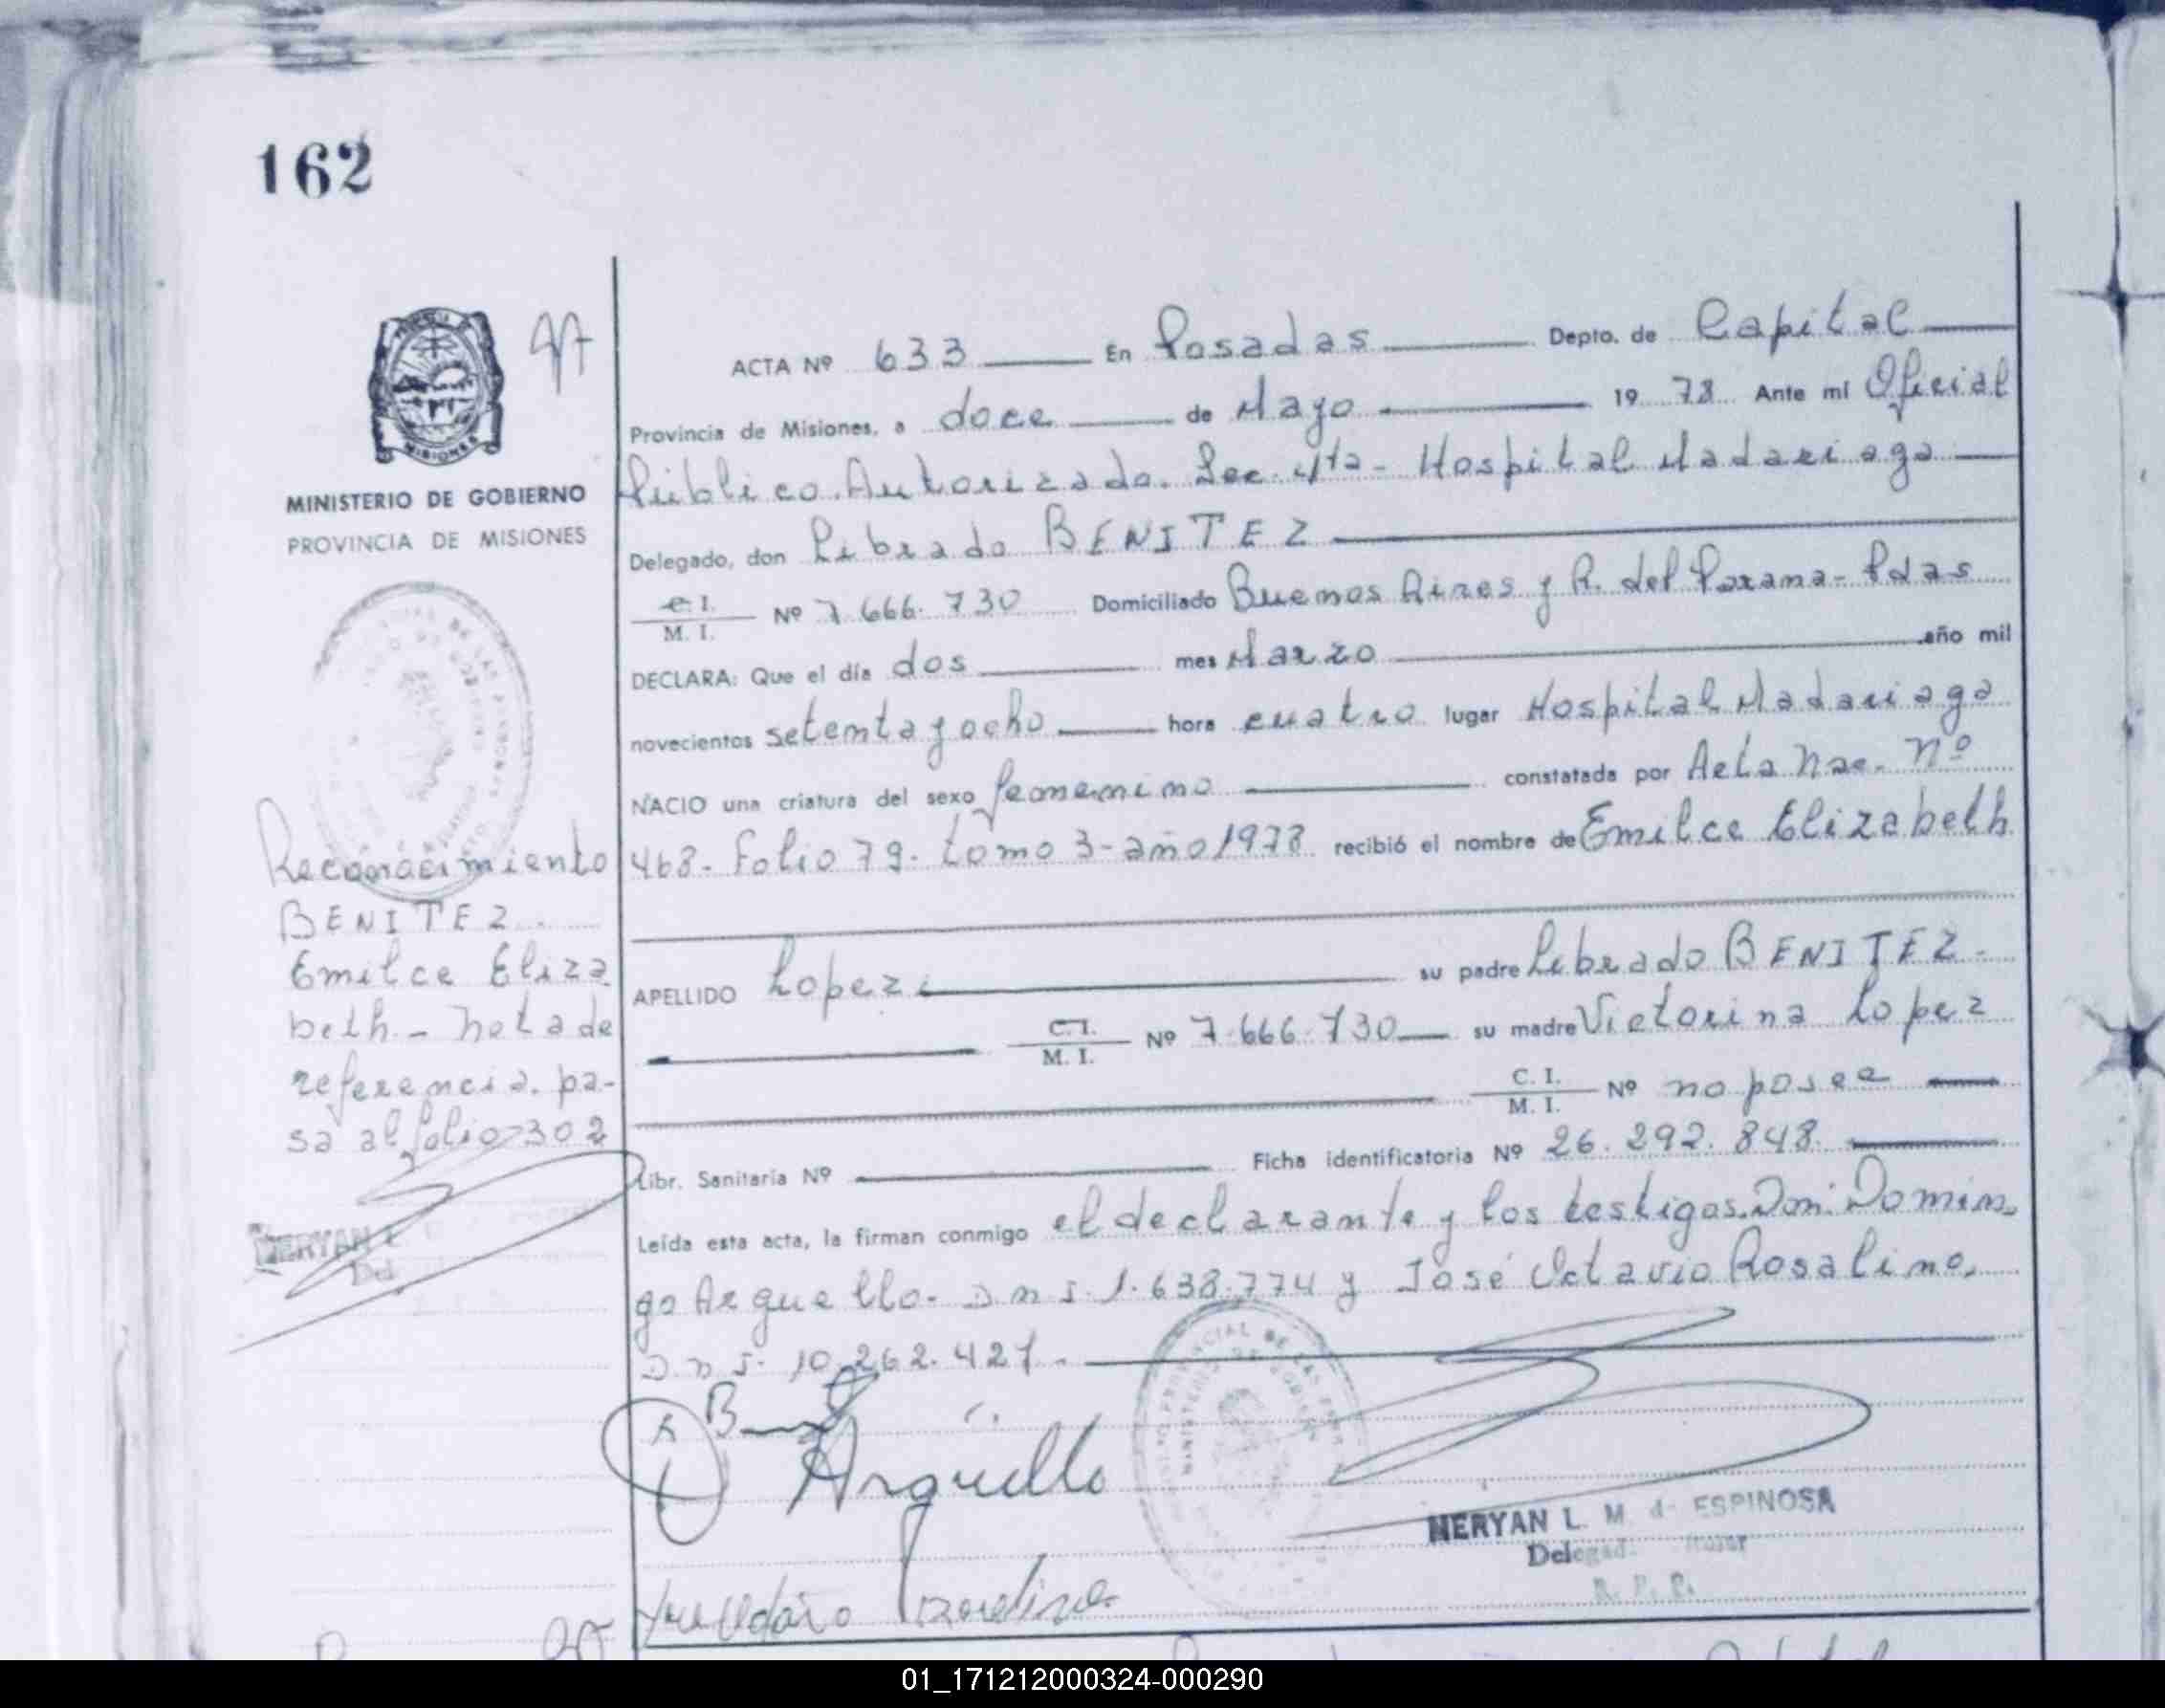 162
MINISTERIO DE GOBIERNO
PROVINCIA DE MISIONES
Reconocimiento
BENITEZ
Emilce Eliza
beth - nota de
referencia. pa-
sa al folio 302
MERYAN L
Del
ACTA Nº 633 En Posadas Depto. de Capital
Provincia de Misiones, a doce de Mayo 19 78 Ante mí Oficial
Público Autorizado. Sec. 4ta - Hospital Madariaga
Delegado, don Librado BENITEZ
C.I. / M. I. Nº 7.666.730 Domiciliado Buenos Aires y R. del Parana - Pdas
DECLARA: Que el día dos mes Marzo año mil
novecientos setenta y ocho hora cuatro lugar Hospital Madariaga
NACIO una criatura del sexo femenino constatada por Acta Nac. Nº
468. Folio 79. tomo 3 - año 1978 recibió el nombre de Emilce Elizabeth
APELLIDO Lopez su padre Librado BENITEZ -
C.I. / M. I. Nº 7.666.730 su madre Victorina Lopez
C. I. / M. I. Nº no posee
Libr. Sanitaria Nº Ficha identificatoria Nº 26.292.848.
Leída esta acta, la firman conmigo el declarante y los testigos. Don: Domin-
go Arguello - D n I. 1.638.774 y José Octavio Rosalino.
D n I. 10.262.427.
Arguello
MERYAN L. M. d ESPINOSA
R. P. P.
01_171212000324-000290